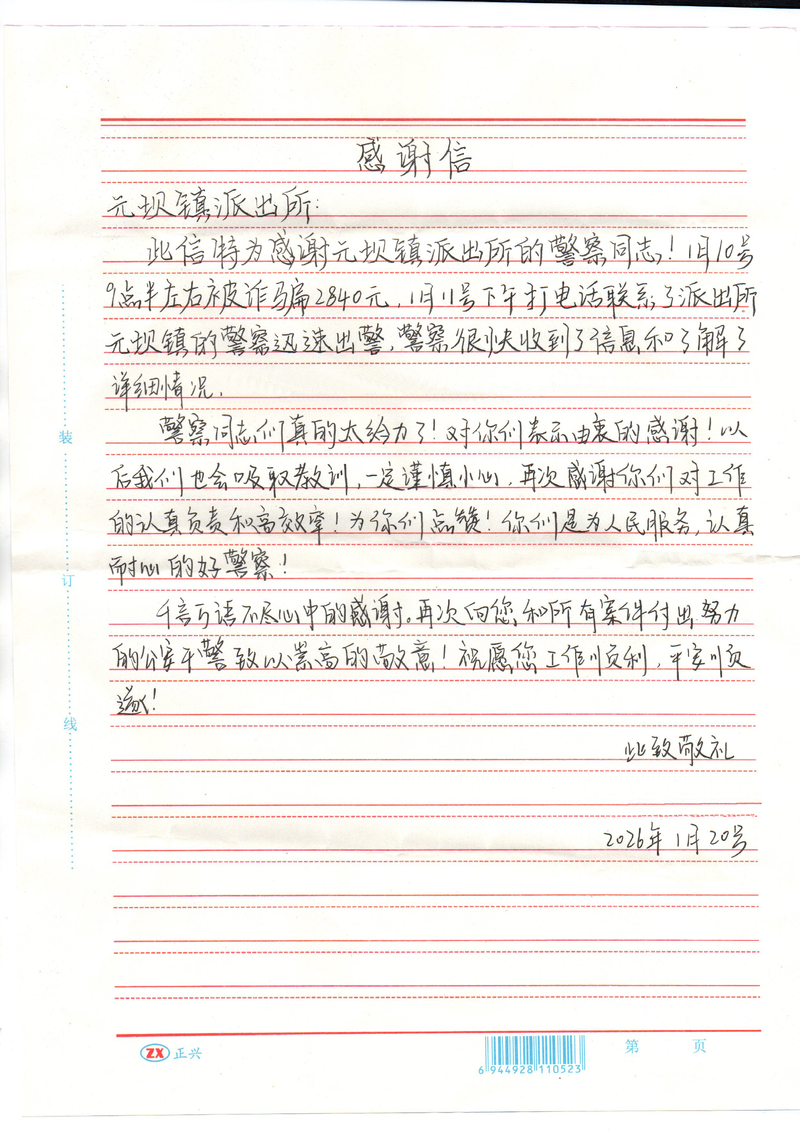 感谢信
元坝镇派出所:
此信特为感谢元坝镇派出所的警察同志!1月10号
9点半左右被诈骗2840元,1月11号下午打电话联系了派出所
元坝镇的警察迅速出警,警察很快收到了信息和了解了
详细情况.
警察同志们真的太给力了!对你们表示由衷的感谢!以
后我们也会吸取教训,一定谨慎小心,再次感谢你们对工作
的认真负责和高效率!为你们点赞!你们是为人民服务,认真
耐心的好警察!
千言万语不尽心中的感谢。再次向您和所有案件付出努力
的公安干警致以崇高的敬意!祝愿您工作顺利,平安顺
遂!
此致敬礼
2026年1月20号
装
订
线
ZX 正兴
6 944928 110523
第 页